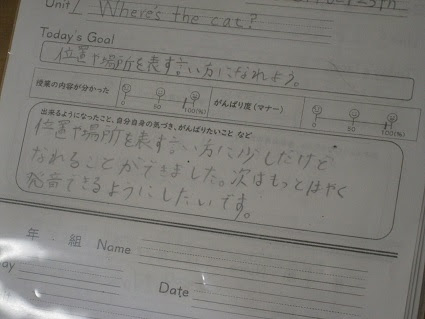 Unit/ Where's the cat?
Today's Goal
位置や場所を表す言い方になれよう。
授業の内容が分かった 0 50 100(%) がんばり度(マナー) 0 50 100(%)
出来るようになったこと、自分自身の気づき、がんばりたいこと など
位置や場所を表す言い方に少しだけど
なれることができました。次はもっとはやく
発音できるようにしたいです。
年 組 Name
Date